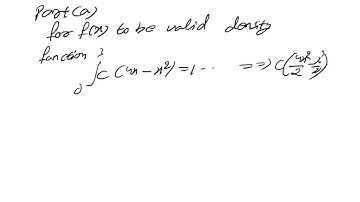 Part(a)
for f(x) to be valid density
function
∫₀³ C (4x - x²) = 1 -- ==> C(4x²/2 - x³/3)